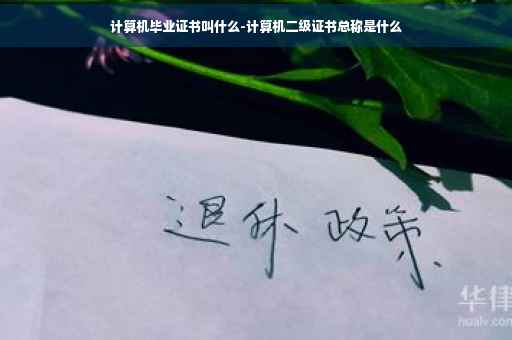 计算机毕业证书叫什么-计算机二级证书总称是什么
退休 政策
华律
hualv.com